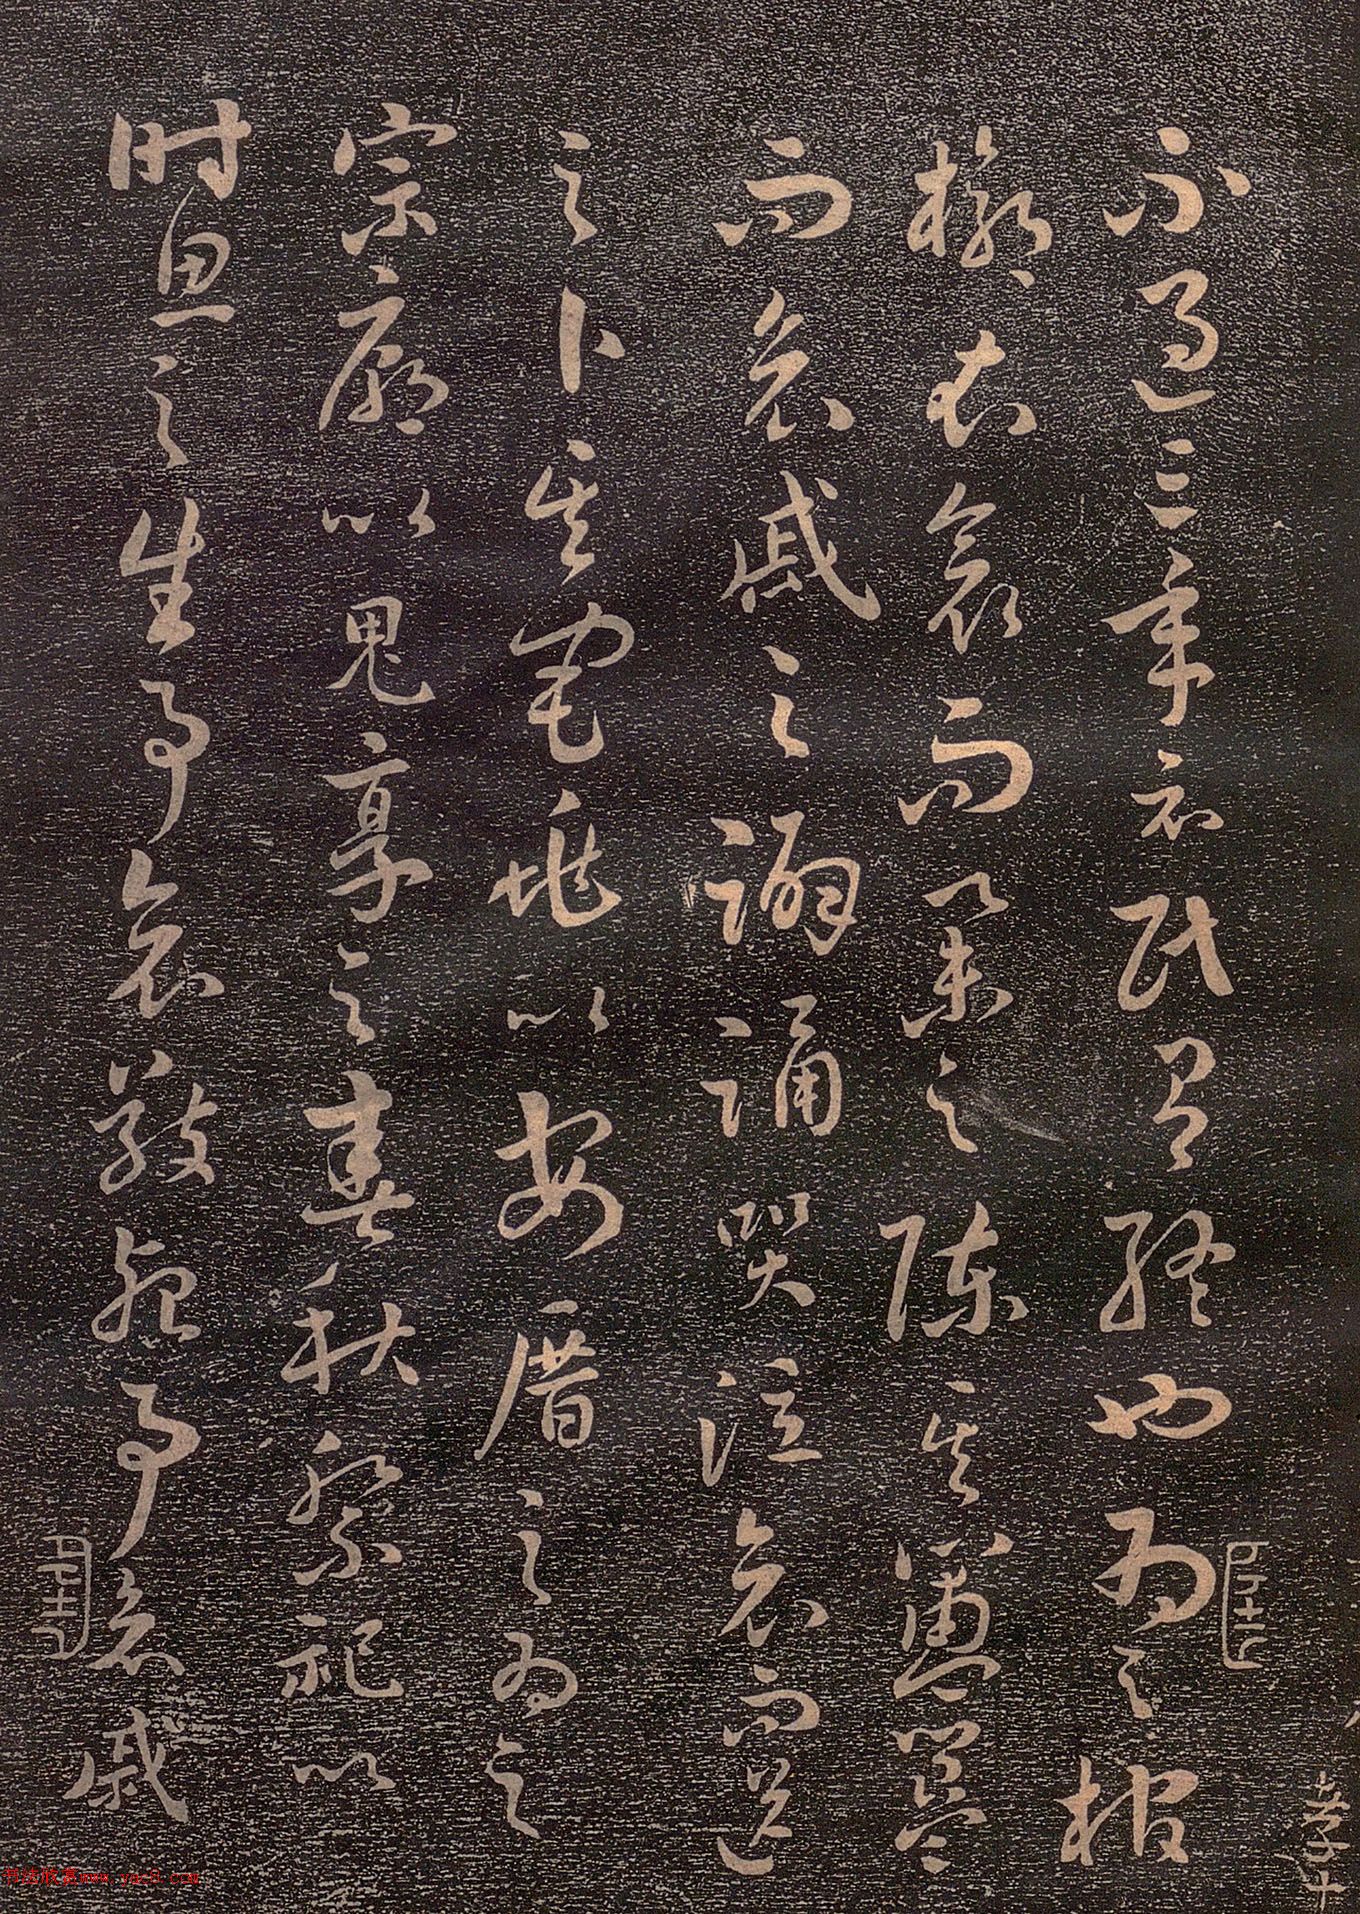 不過三年示民有終也為之棺
槨衣衾而舉之陳其簠簋
而哀戚之擗踊哭泣哀而送
之卜其宅垗以安厝之為之
宗廟以鬼享之春秋祭祀以
時思之生事愛敬死事哀戚
书法欣赏www.yac8.com